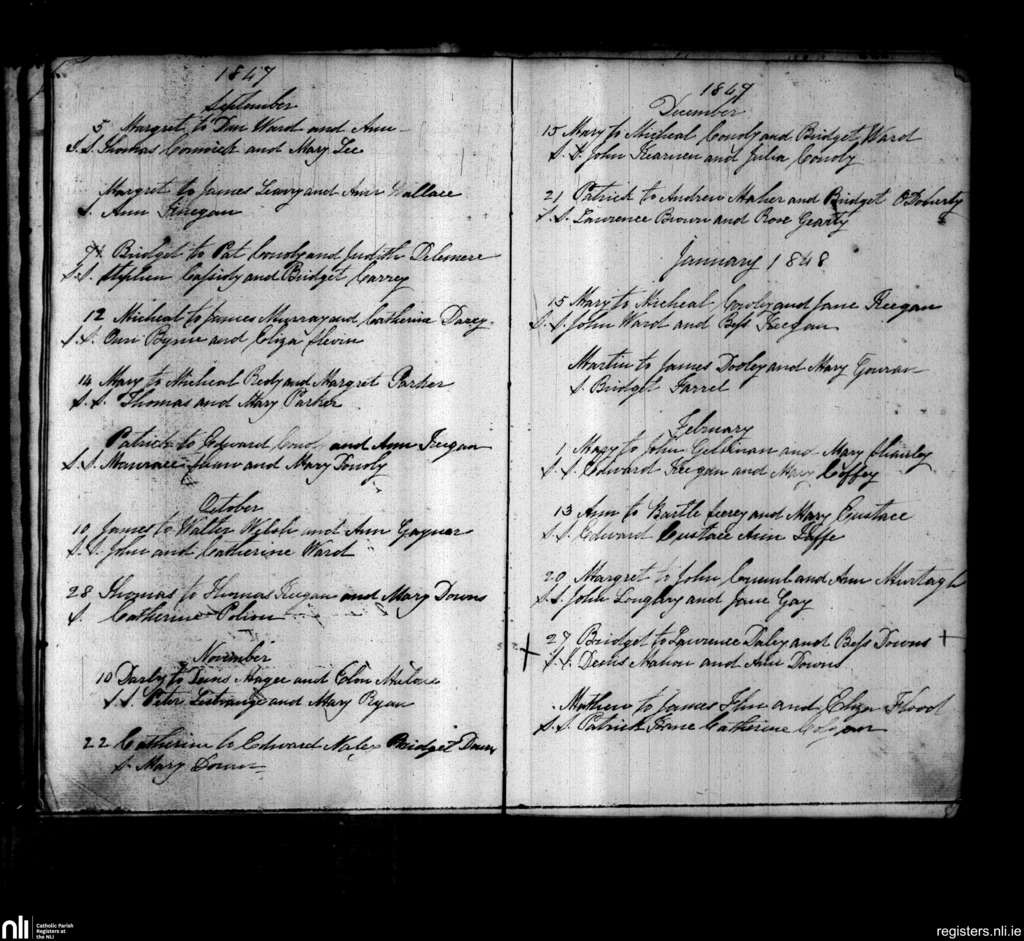 1847
September
5 Margret to Dan Ward and Ann
S. S. Thomas Cormick and Mary Lee
Margret to James Leavy and Ann Wallace
S. Ann Keegan
Bridget to Pat Conoly and Judith Delemere
S. S. Stephen Cassidy and Bridget Carrey
12 Micheal to James Murray and Catherine Darcy
S. S. Byrne and Eliza Slevin
14 Mary to Micheal Redy and Margret Parker
S. S. Thomas and Mary Parker
Patrick to Edward and Ann Keegan
S. S. and Mary Conoly
October
10 James to Walter Welsh and Ann Gaynor
S. S. John and Catherine Ward
28 Thomas to Thomas Keegan and Mary Downs
S. Catherine
November
10 Darby to Denis Magee and
S. S. Peter Lestrange and Mary Ryan
22 Catherine to Edward Bridget Down
S. Mary Down
1847
December
15 Mary to Micheal Conoly and Bridget Ward
S. S. John Kearnen and Julia Conoly
21 Patrick to Andrew Maher and Bridget O'Doherty
S. S. Lawrence Brown and Rose Gearty
January 1848
15 Mary to Micheal Conoly and Jane Keegan
S. S. John Ward and Bess Keegan
Martin to James Dooley and Mary Gouran
S. Bridget Farrel
February
1 Mary to John and Mary
S. S. Edward Keegan and Mary Coffey
13 Ann to Bartle and Mary Eustace
S. S. Edward Eustace Ann Taffe
20 Margret to John and Ann Murtagh
S. S. John and Jane Gay
27 Bridget to Lawrence Daley and Bess Downs
S. S. Denis Mahon and Ann Downs
Mathew to James and Eliza Flood
S. S. Patrick Catherine
nli
Catholic Parish
Registers at
the NLI
registers.nli.ie